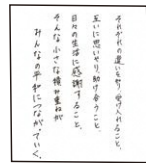 それぞれの違いを受け入れること、
互いに思いやり助け合うこと、
日々の生活に感謝すること、
そんな小さな積み重ねが
みんなの平和につながっていく。